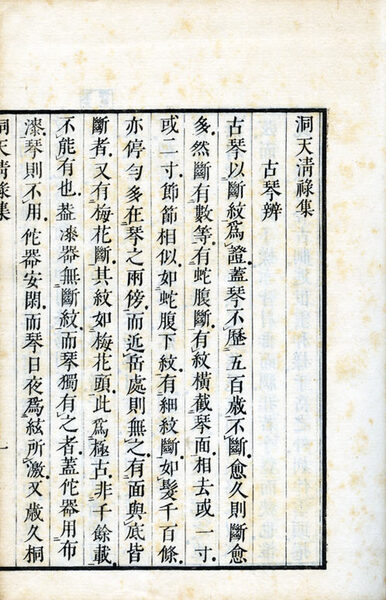 洞天清祿集
古琴辨
古琴以斷紋爲證葢琴不歷五百歲不斷愈久則斷愈
多然斷有數等有蛇腹斷有紋橫截琴面相去或一寸
或二寸節節相似如蛇腹下紋有細紋斷如髮千百條
亦停勻多在琴之兩傍而近岳處則無之有面與底皆
斷者又有梅花斷其紋如梅花頭此爲極古非千餘載
不能有也葢漆器無斷紋而琴獨有之者葢佗器用布
漆琴則不用佗器安閑而琴日夜爲絃所激又歲久桐
洞天清祿集
一